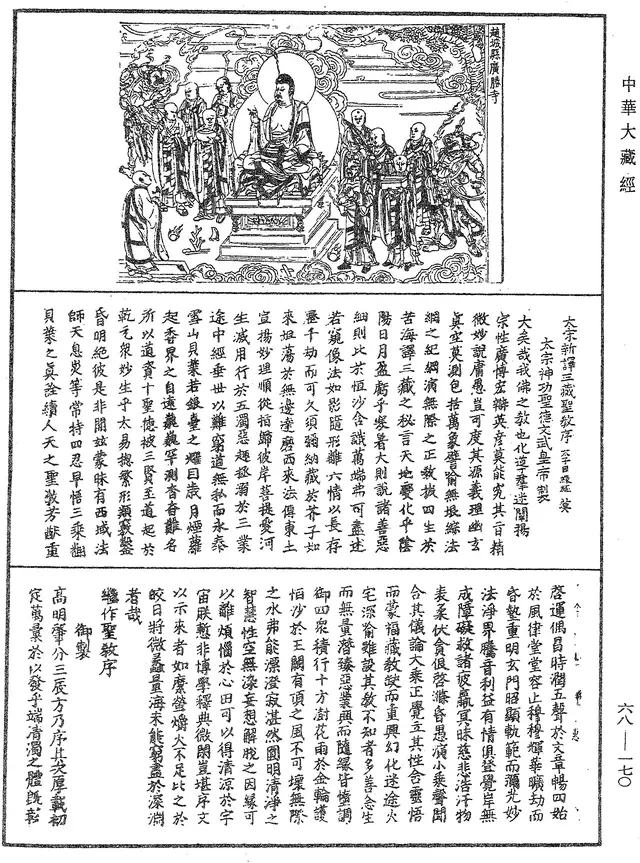 中華大藏經
六八—一七〇
趙城縣廣勝寺
太宗新譯三藏聖教序
太宗神功聖德文武皇帝製
大矣哉我佛之教也化導羣迷闡揚
宗性廣博宏辯英彥莫能究其旨精
微妙說庸愚豈可度其源義理幽玄
真空莫測包括萬象譬喻無垠綜法
網之紀綱演無際之正教拔四生於
苦海譯三藏之秘言天地變化乎陰
陽日月盈虧乎寒暑大則說諸善惡
細則比於恒沙含識萬端弗可盡述
若窺像法如影隨形離六情以長存
歷千劫而可久須彌納藏於芥子如
來坦蕩於無邊達磨西來法傳東土
宣揚妙理順從指歸彼岸菩提愛河
生滅用行於五濁惡趣拯溺於三業
途中經垂世以難窮道無私而永泰
雪山貝葉若銀臺之耀目歲月煙蘿
起香界之自遠巍巍罕測杳杳難名
所以道資十聖德被三賢至道起於
乾元衆妙生乎太易揔繁形類竅鑿
昏明絕彼是非開兹蒙昧有西域法
師天息災等常持四忍早悟三乘翻
貝葉之真詮續人天之聖教芳猷重
啓運偶昌時潤五聲於文章暢四始
於風律堂堂容止穆穆輝華曠劫而
昏墊重明玄門昭顯軌範而彌光妙
法淨界騰音利益有情俱登覺岸無
成障礙救諸疲羸冥昧慈悲浩汗物
表柔伏貪佷啓滌昏愚演小乘聲聞
合其儀論大乘正覺立其性含靈悟
而蒙福藏教缺而重興幻化迷途火
宅深喻雖設其教不知者多善念生
而無量潛臻惡業興而隨緣皆墮調
御四衆積行十方澍花雨於金輪護
恒沙於王闕有頂之風不可壞無際
之水弗能漂澄寂湛然圓明清淨之
智慧性空無染妄想解脫之因緣可
以離煩惱於心田可以得清源於宇
宙朕慙非博學釋典微閑豈堪序文
以示來者如縻螢爝火不足比之於
皎日將微蠡量海未能窮盡於深淵
者哉
繼作聖教序
御製
高明肇分三辰方乃序其次厚載初
定萬彙於以發乎端清濁之體旣彰